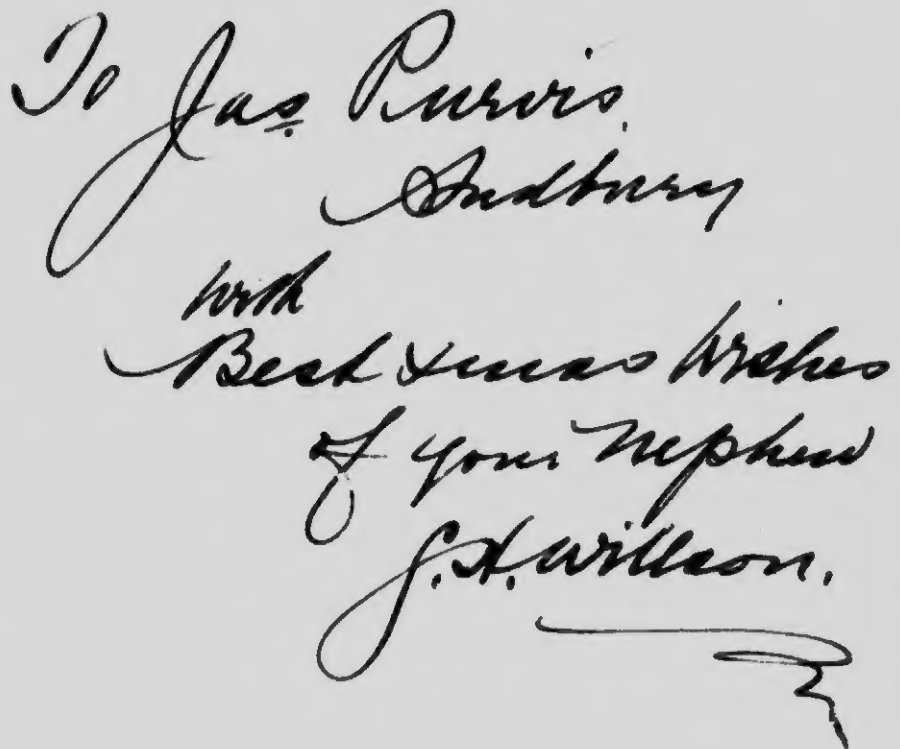 To Jas. Purvis,
Sudbury
with
Best Xmas Wishes
of your Nephew
J. H. Willson.